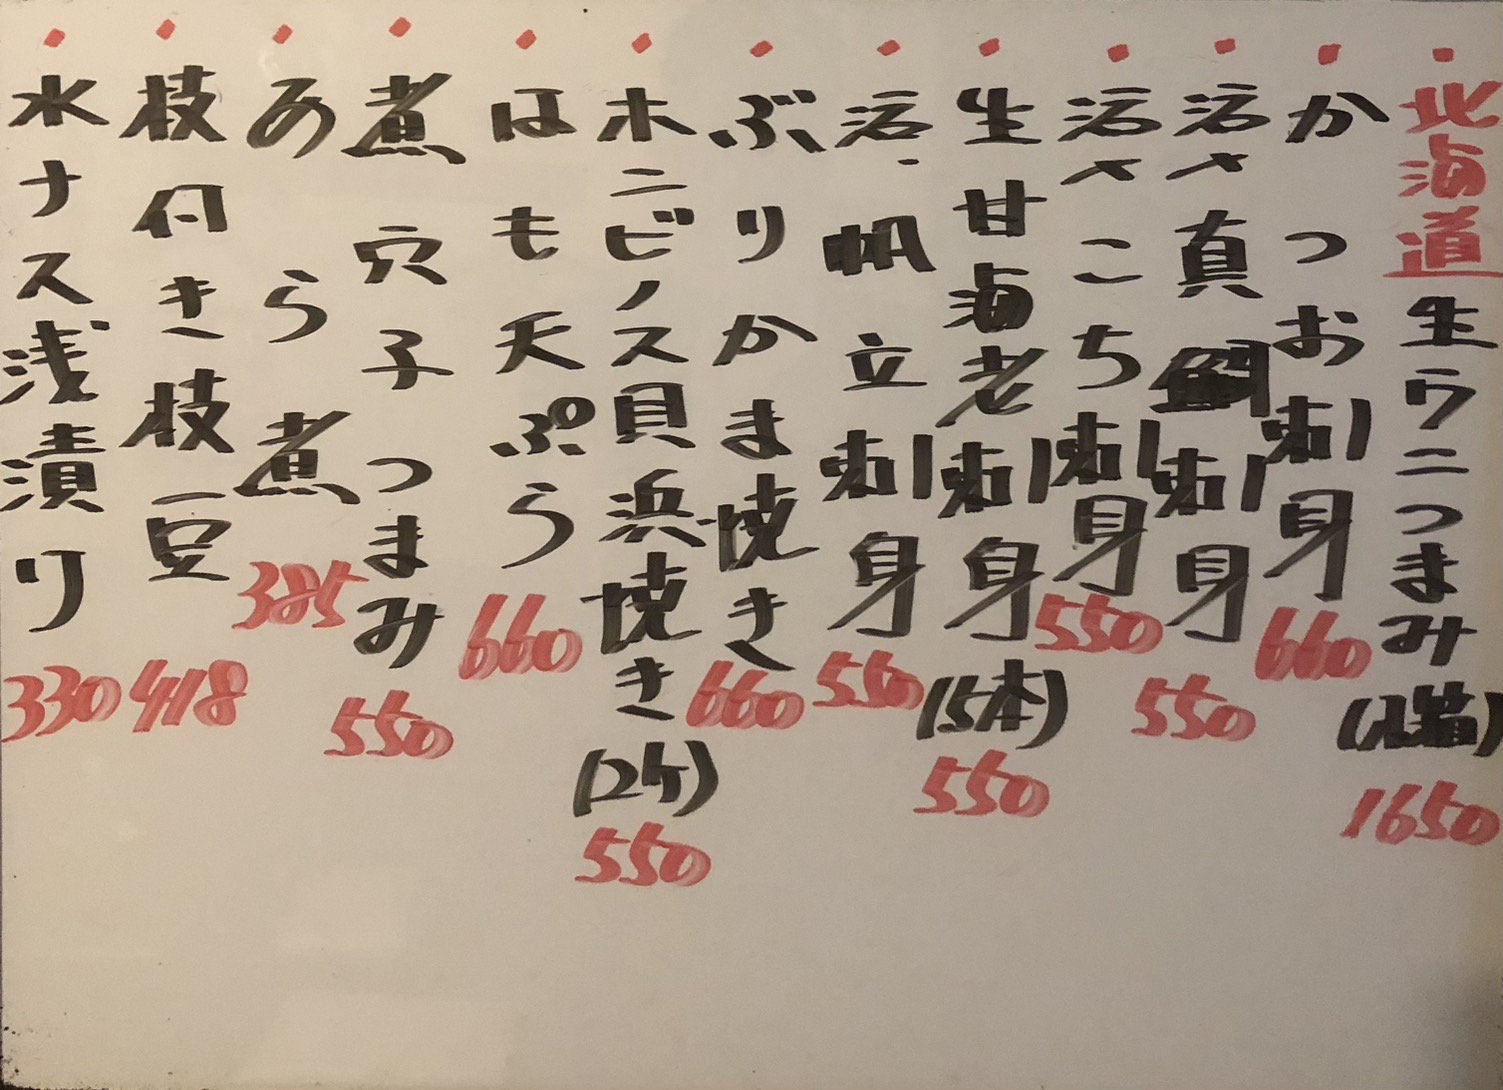 北海道生ウニつまみ 1650
かつお刺身 660
活〆真鯛刺身 550
活〆こち刺身 550
生甘海老刺身(5本) 550
活帆立刺身 550
ぶりかま焼き 660
ホンビノス貝浜焼き(2ケ) 550
はも天ぷら 660
煮穴子つまみ 550
あら煮 385
枝付き枝豆 418
水ナス浅漬り 330